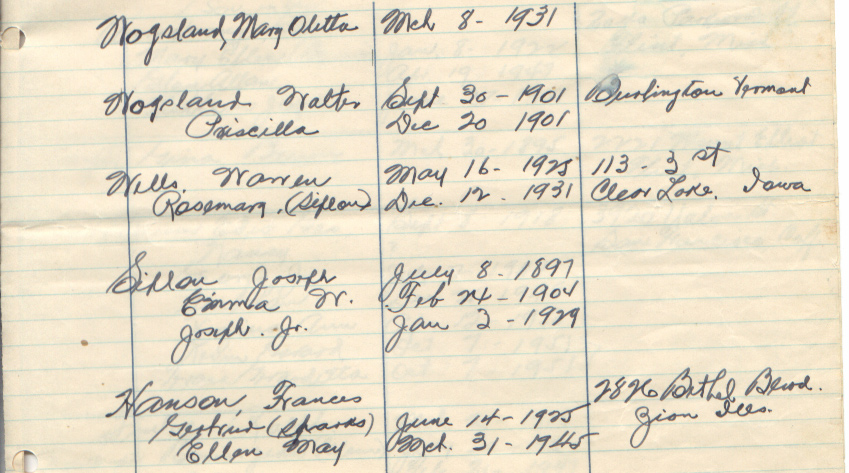 Wogsland, Mary Oletta Mch 8 - 1931
Wogsland Walter Sept 30 - 1901 Burlington Vermont
Priscilla Dec 20 1901
Wells. Warren May 16 - 1925 113 - 3 st
Rosemary. (Siplon) Dec. 12. 1931 Clear Lake. Iowa
Siplon Joseph July 8 - 1897
Emma W. Feb 24 - 1904
Joseph. Jr. Jan 2 - 1929
Hanson, Frances 2826 Bethel Blvd.
Gertrud (Sparks) June 14 - 1925 Zion Ills.
Ellen May Mch. 31 - 1945